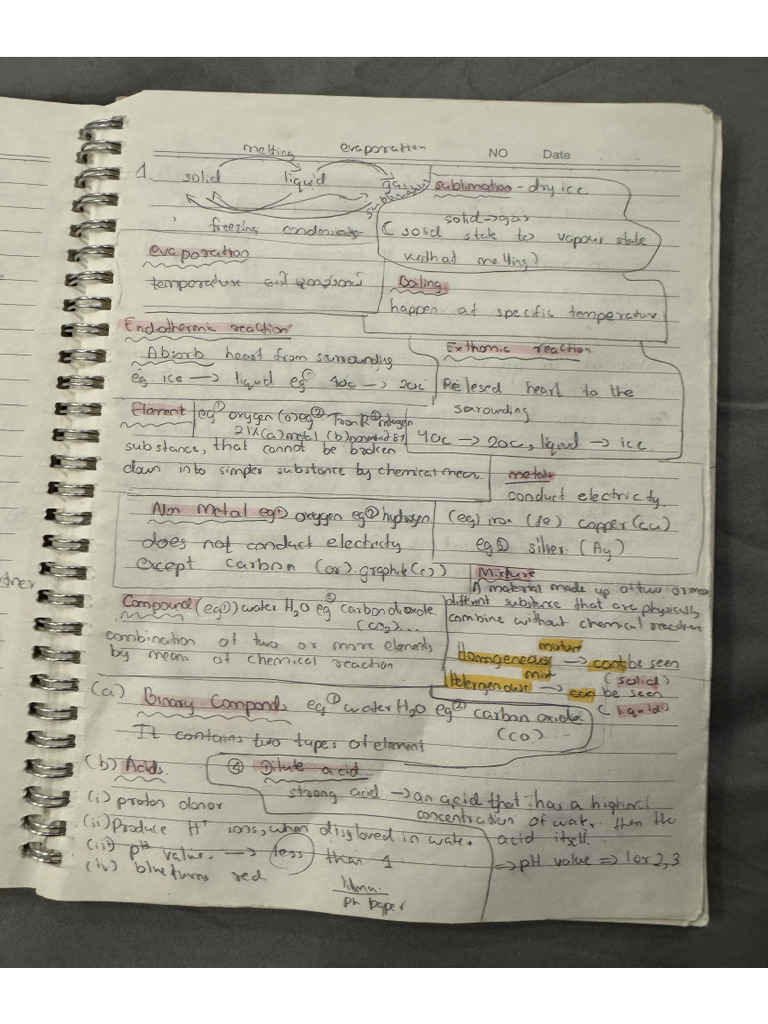 melting evaporation
NO Date
1. solid liquid gas
sublimation - dry ice
solid → gas
(solid state to vapour state
without melting)
freezing condensation
evaporation
temperature
Boiling
happen at specific temperature
Endothermic reaction
Absorb heart from surrounding
eg. ice → liquid eg 40c → 20c
Exthomic reaction
Relesed heart to the
sorrounding
40c → 20c, liquid → ice
Element eg① oxygen (o) eg②
21% (a) metal (b)
substance, that cannot be broken
down into simpler substance by chemical mean.
metals
conduct electricty
(eg) iron (fe) copper (cu)
eg② silver (Ag)
Non Metal eg① oxygen eg② hydrogen
does not conduct electricty
except carbon (or) graphite (c)
Mixture
A material made up of two or more
different substance that are physically
combine without chemical reaction
Homogeneous mixture → cant be seen
(solid)
Hetergenouse mixt → can be seen
(liquid)
Compound (eg①) water H₂O eg② carbon dioxide
(CO₂)...
combination of two or more elements
by means of chemical reaction
(a) Binary Componds eg① water H₂O eg② carbon oxide
(CO)...
It contains two types of element
(b) Acids
④ ① Dilute acid
strong acid → an acid that has a higher
concentration of water then the
acid itself.
⇒ pH value ⇒ 1 or 2, 3
(i) proton donor
(ii) Produce H⁺ ions, when dissloved in water
(iii) pH value. → less than 7
(iv) blue turns red
litmu.
PH paper